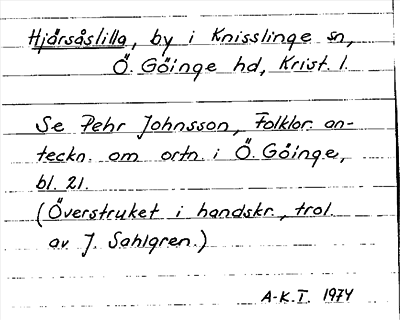 Hjärsåslilla, by i Knisslinge sn,
Ö. Göinge hd, Krist. l.
Se Pehr Johnsson, Folklor. an-
teckn. om ortn. i Ö. Göinge,
bl. 21.
(Överstruket i handskr., trol.
av J. Sahlgren.)
A-K.T. 1974